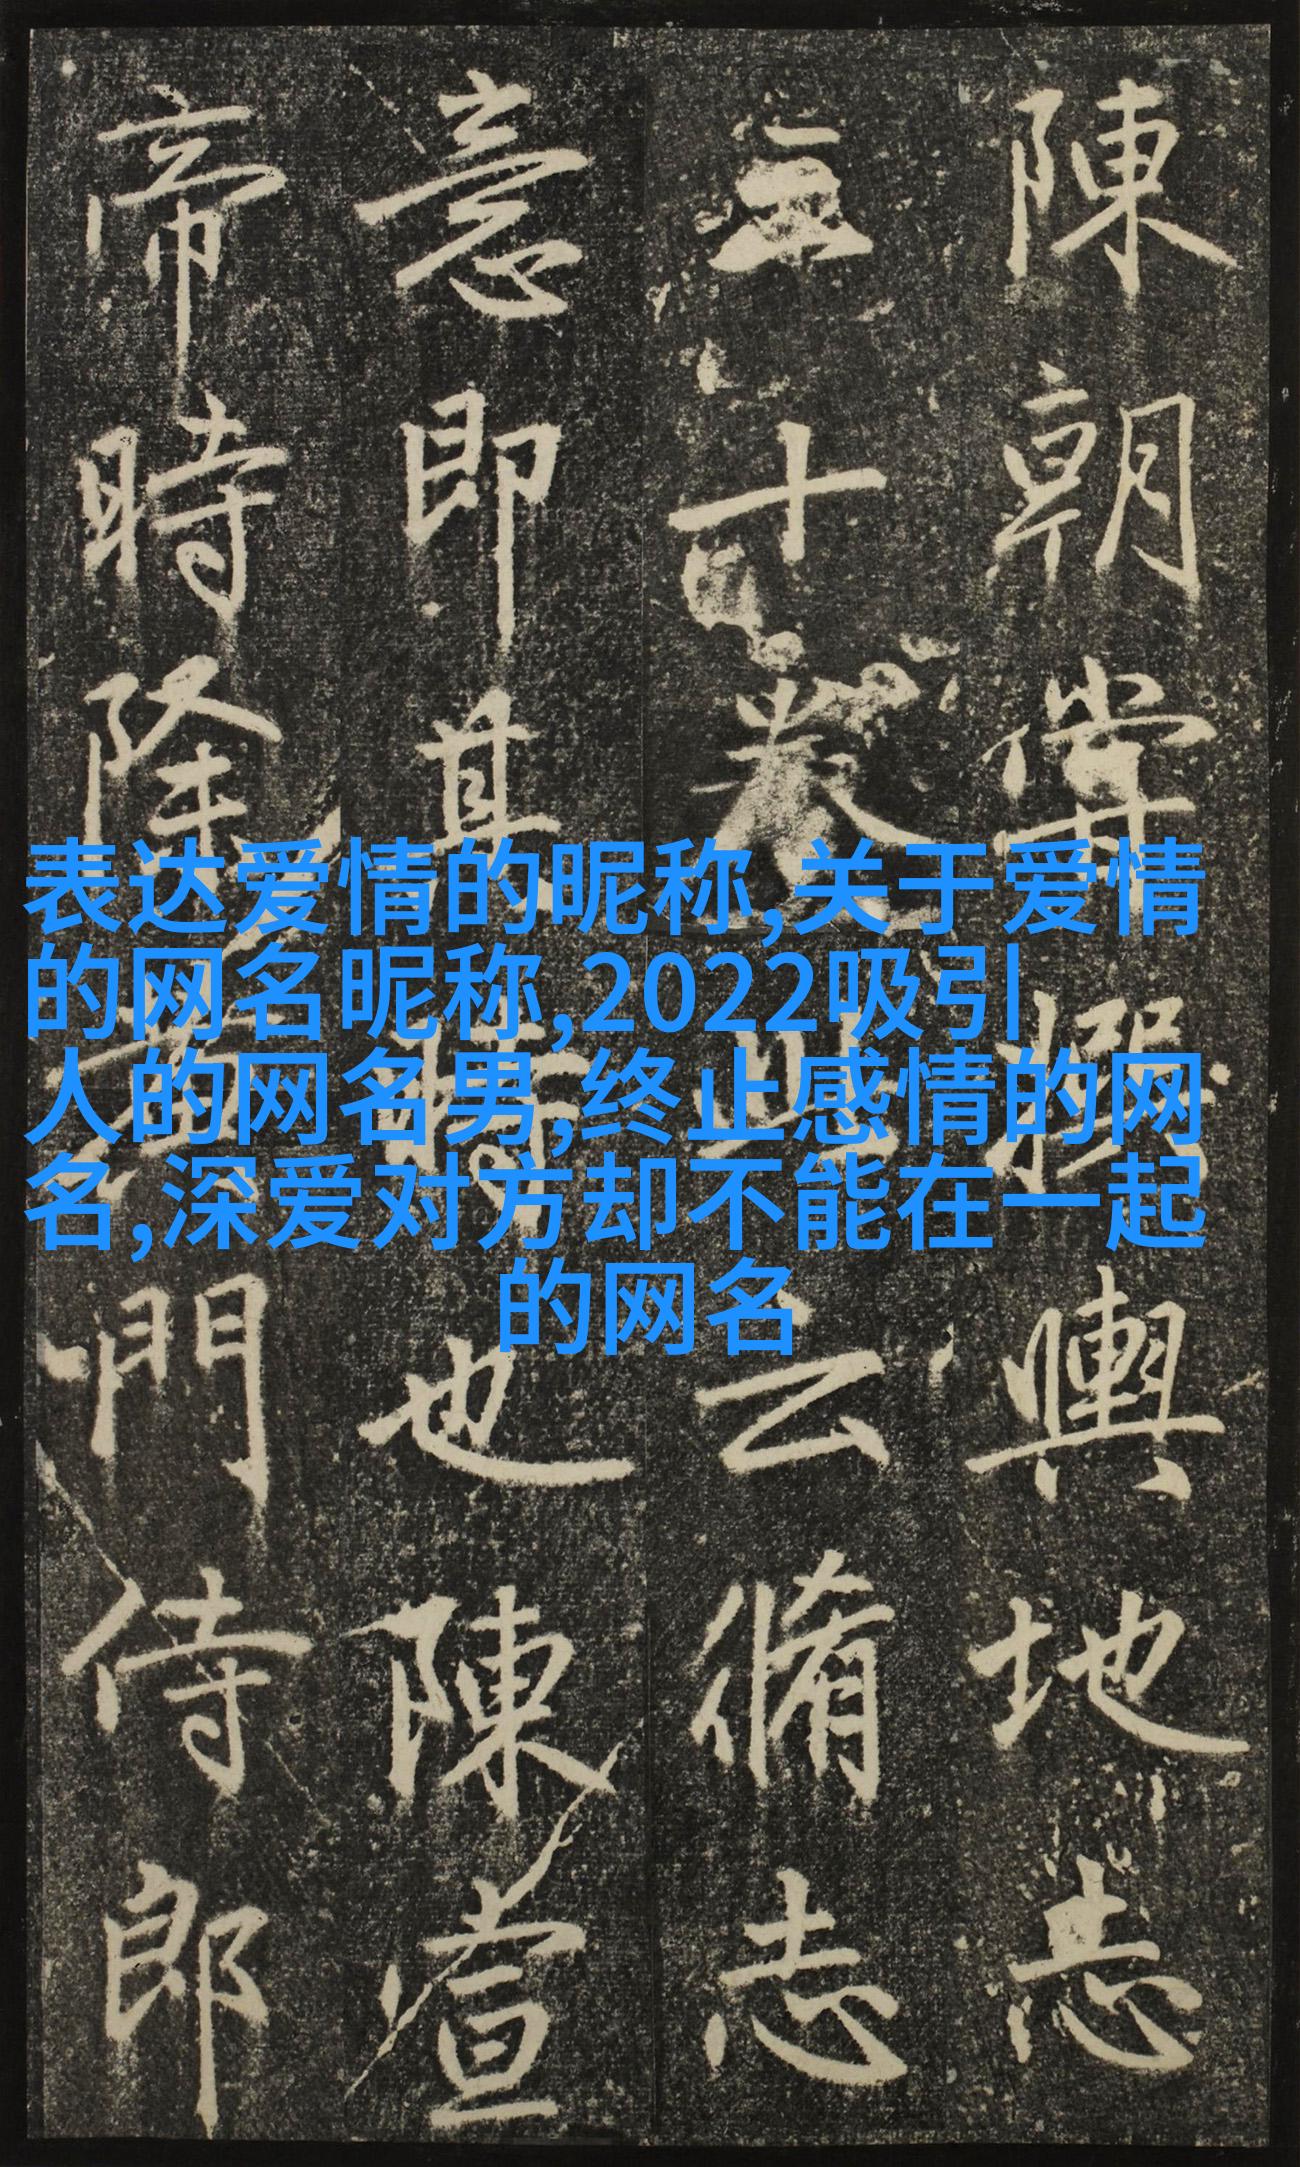 陳朝嘗撰輿地志
三十卷此云脩志
意即其時也陳宣
帝時除黃門侍郎
表达爱情的昵称,关于爱情
的网名昵称,2022吸引
人的网名男,终止感情的网
名,深爱对方却不能在一起
的网名